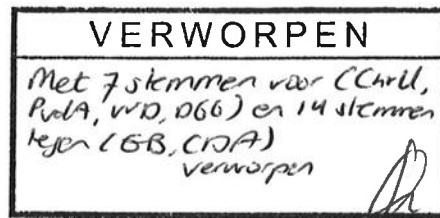 VERWORPEN
Met 7 stemmen voor (ChrU,
PvdA, VVD, D66) en 14 stemmen
tegen (GB, CDA)
verworpen